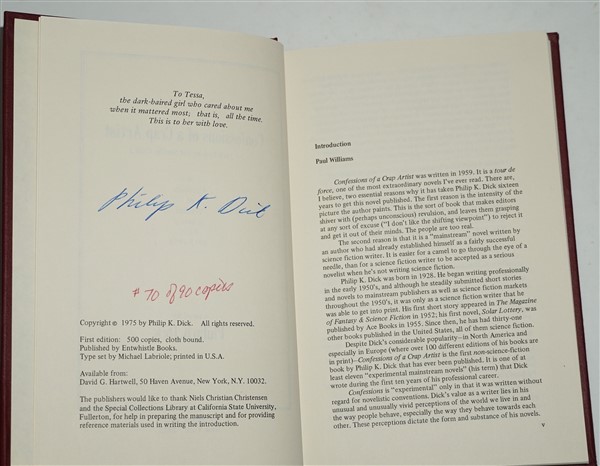 To Tessa,
the dark-haired girl who cared about me
when it mattered most; that is, all the time.
This is to her with love.
Philip K. Dick
# 70 of 90 copies
Copyright © 1975 by Philip K. Dick. All rights reserved.
First edition: 500 copies, cloth bound.
Published by Entwhistle Books.
Type set by Michael Labriole; printed in U.S.A.
Available from:
David G. Hartwell, 50 Haven Avenue, New York, N.Y. 10032.
The publishers would like to thank Niels Christian Christensen
and the Special Collections Library at California State University,
Fullerton, for help in preparing the manuscript and for providing
reference materials used in writing the introduction.
Introduction
Paul Williams
Confessions of a Crap Artist was written in 1959. It is a tour de
force, one of the most extraordinary novels I've ever read. There are,
I believe, two essential reasons why it has taken Philip K. Dick sixteen
years to get this novel published. The first reason is the intensity of the
picture the author paints. This is the sort of book that makes editors
shiver with (perhaps unconscious) revulsion, and leaves them grasping
at any sort of excuse ("I don't like the shifting viewpoint") to reject it
and get it out of their minds. The people are too real.
The second reason is that it is a "mainstream" novel written by
an author who had already established himself as a fairly successful
science fiction writer. It is easier for a camel to go through the eye of a
needle, than for a science fiction writer to be accepted as a serious
novelist when he's not writing science fiction.
Philip K. Dick was born in 1928. He began writing professionally
in the early 1950's, and although he steadily submitted short stories
and novels to mainstream publishers as well as science fiction markets
throughout the 1950's, it was only as a science fiction writer that he
was able to get into print. His first short story appeared in The Magazine
of Fantasy & Science Fiction in 1952; his first novel, Solar Lottery, was
published by Ace Books in 1955. Since then, he has had thirty-one
other books published in the United States, all of them science fiction.
Despite Dick's considerable popularity—in North America and
especially in Europe (where over 100 different editions of his books are
in print)—Confessions of a Crap Artist is the first non-science-fiction
book by Philip K. Dick that has ever been published. It is one of at
least eleven "experimental mainstream novels" (his term) that Dick
wrote during the first ten years of his professional career.
Confessions is "experimental" only in that it was written without
regard for novelistic conventions. Dick's value as a writer lies in his
unusual and unusually vivid perceptions of the world we live in and
the way people behave, especially the way they behave towards each
other. These perceptions dictate the form and substance of his novels.
v